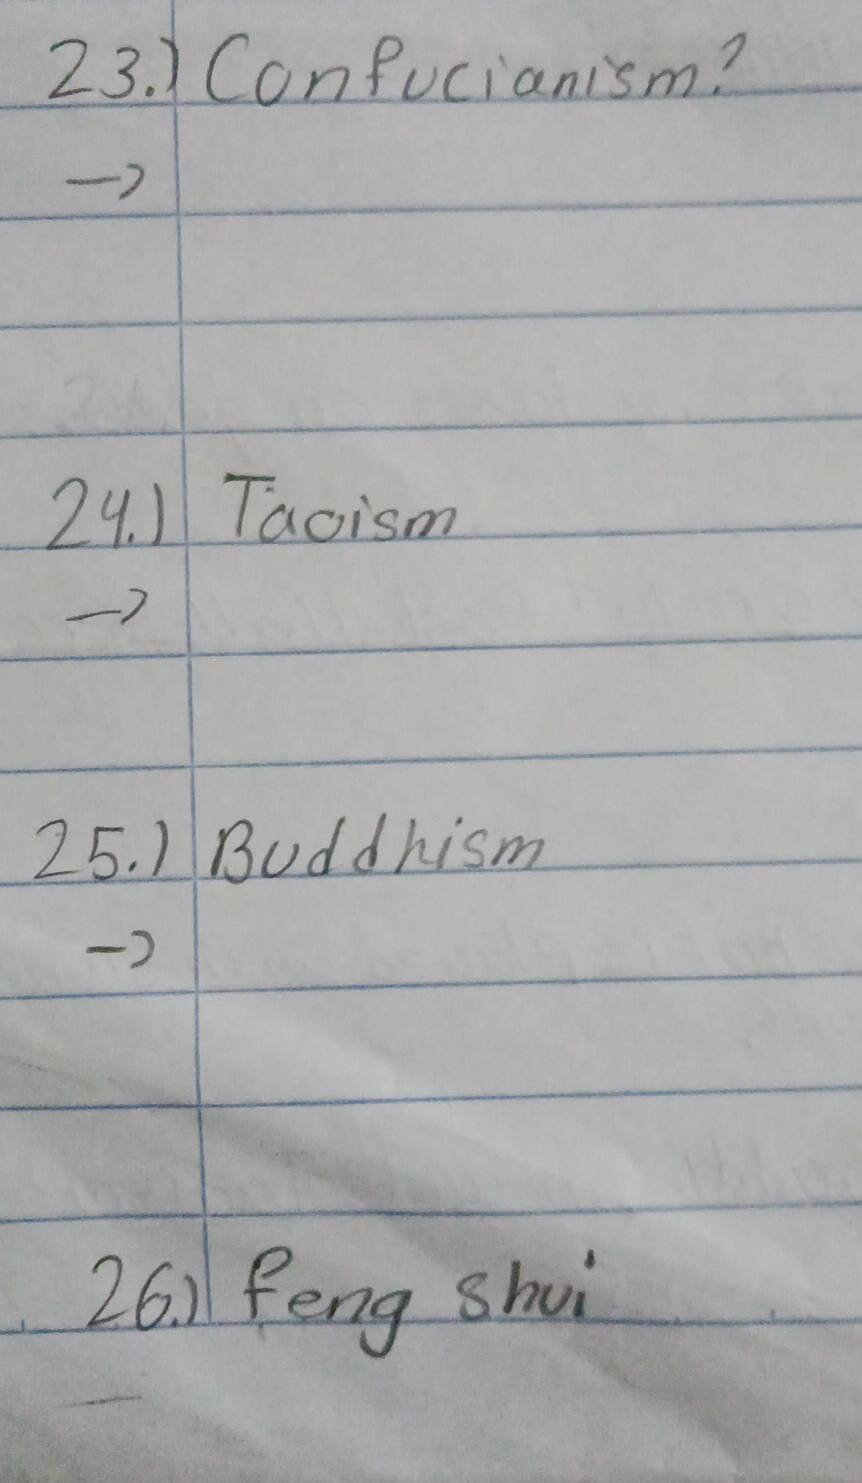 23.) Confucianism?
→
24.) Taoism
→
25.) Buddhism
→
26.) feng shui